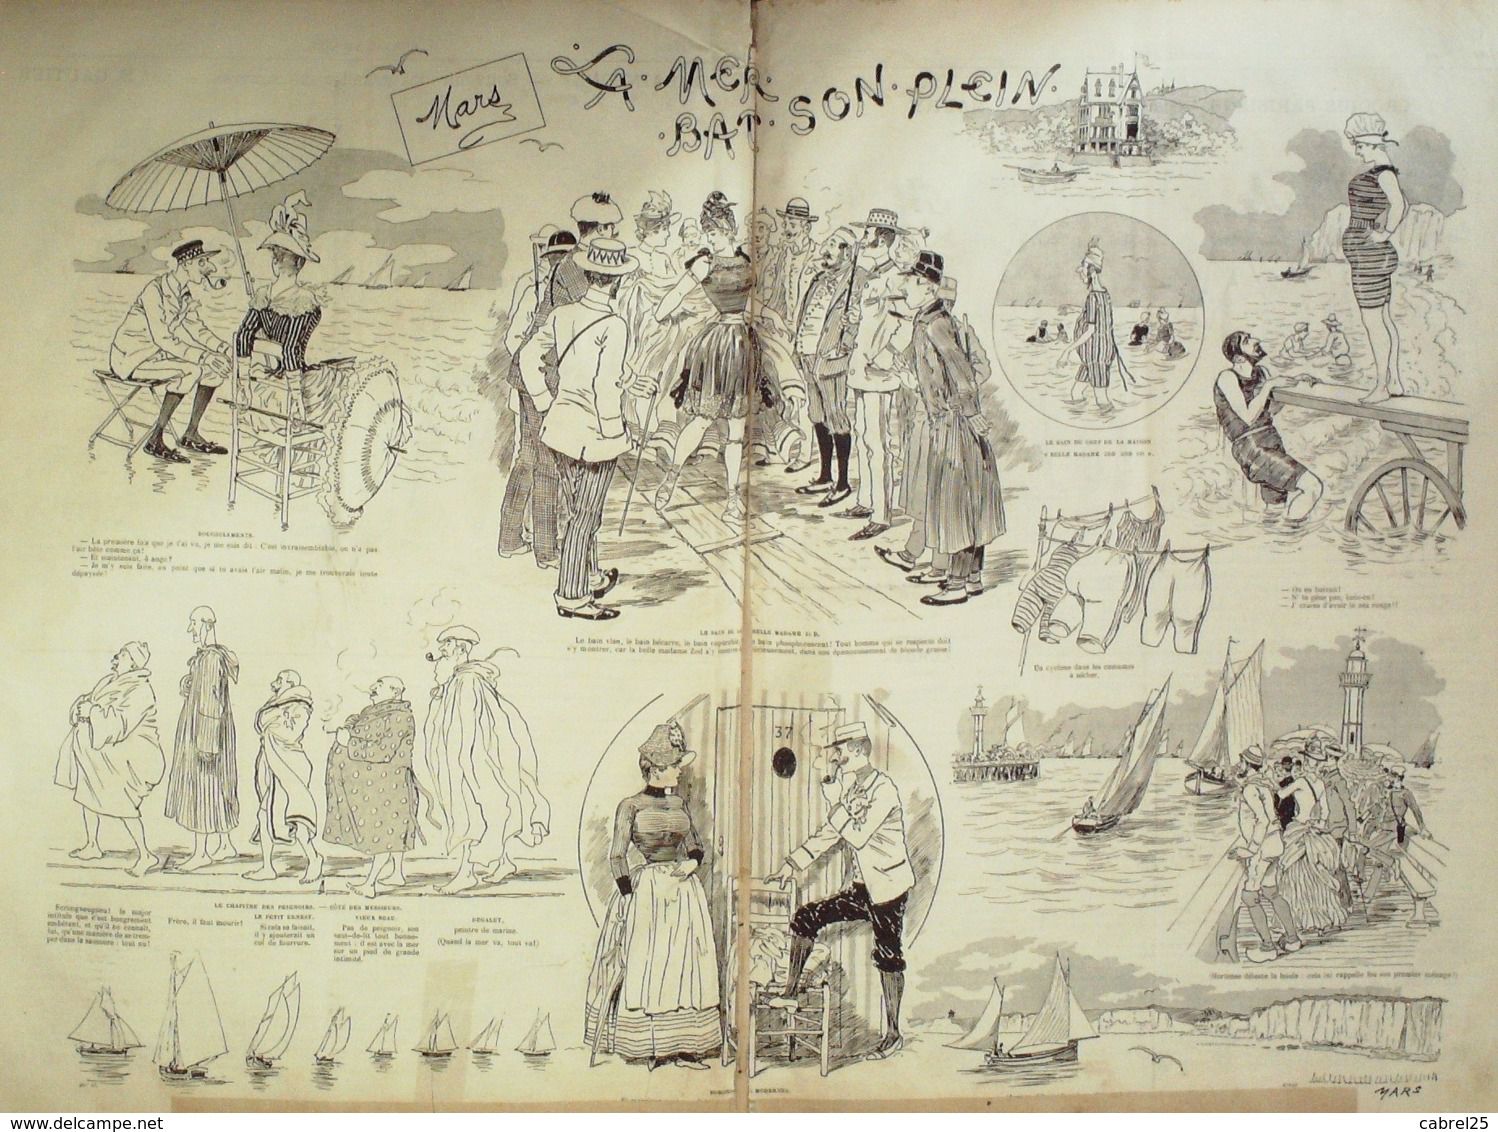 Mars
LA·MER·
·BAT·SON·PLEIN·
ROUCOULEMENTS.
— La première fois que je t'ai vu, je me suis dit : C'est invraisemblable, on n'a pas
l'air bête comme ça!
— Et maintenant, ô ange?
— Je m'y suis faite, au point que si tu avais l'air malin, je me trouverais toute
dépaysée!
LE BAIN DE BELLE MADAME ZED.
Le bain vlan, le bain bécarre, le bain bain phosphorescent! Tout homme qui se respecte doit
s'y montrer, car la belle madame Zed s'y dans son épanouissement de beauté grasse!
LE BAIN DU CHEF DE LA MAISON
« BELLE MADAME ZED AND Cº ».
— On en boirait!
— N' te gêne pas, bois-en!
— J' crains d'avoir le nez rouge!!
Un cyclone dans les costumes
à sécher.
37
LE CHAPITRE DES PEIGNOIRS. — CÔTÉ DES MESSIEURS.
Scrongneugneu! le major
intitule que c'est bougrement
embêtant, et qu'il ne connaît,
lui, qu'une manière de se trem-
per dans la saumure : tout nu!
Frère, il faut mourir!
LE PETIT ERNEST.
Si cela se faisait,
il y ajouterait un
col de fourrure.
VIEUX BEAU.
Pas de peignoir, son
saut-de-lit tout bonne-
ment : il est avec la mer
sur un pied de grande
intimité.
BÉGALET,
peintre de marine.
(Quand la mer va, tout va!)
Hortense déteste la houle : cela lui rappelle feu son premier ménage!!
MODERNES.
MARS
cabrel25